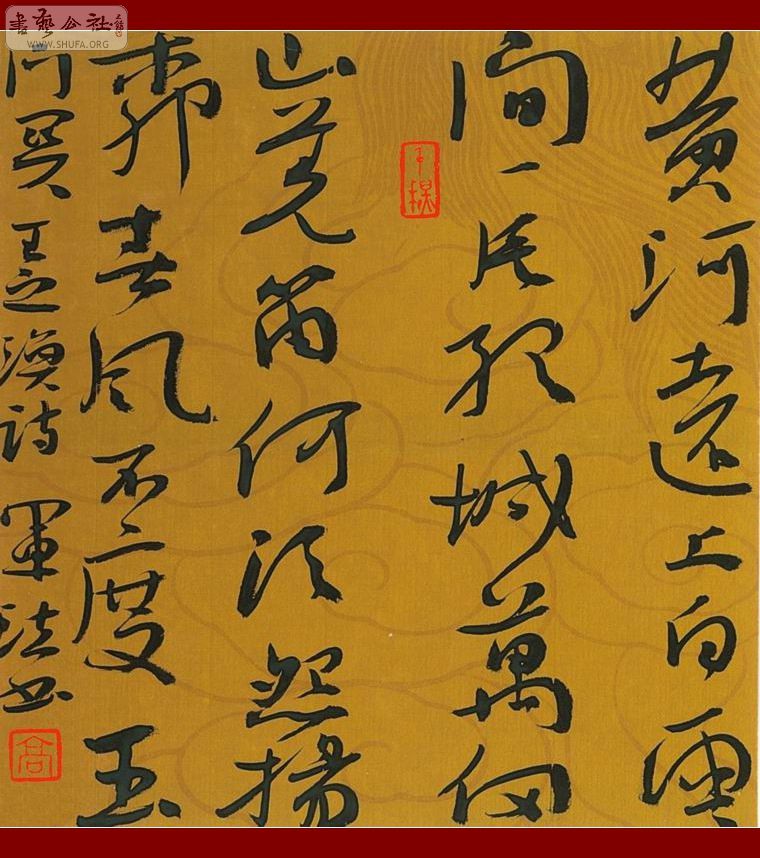 書藝公社
WWW.SHUFA.ORG
黄河遠上白雲
間一片孤城萬仞
山羌笛何須怨揚
柳春風不度玉
門関王之渙詩軍法书
高